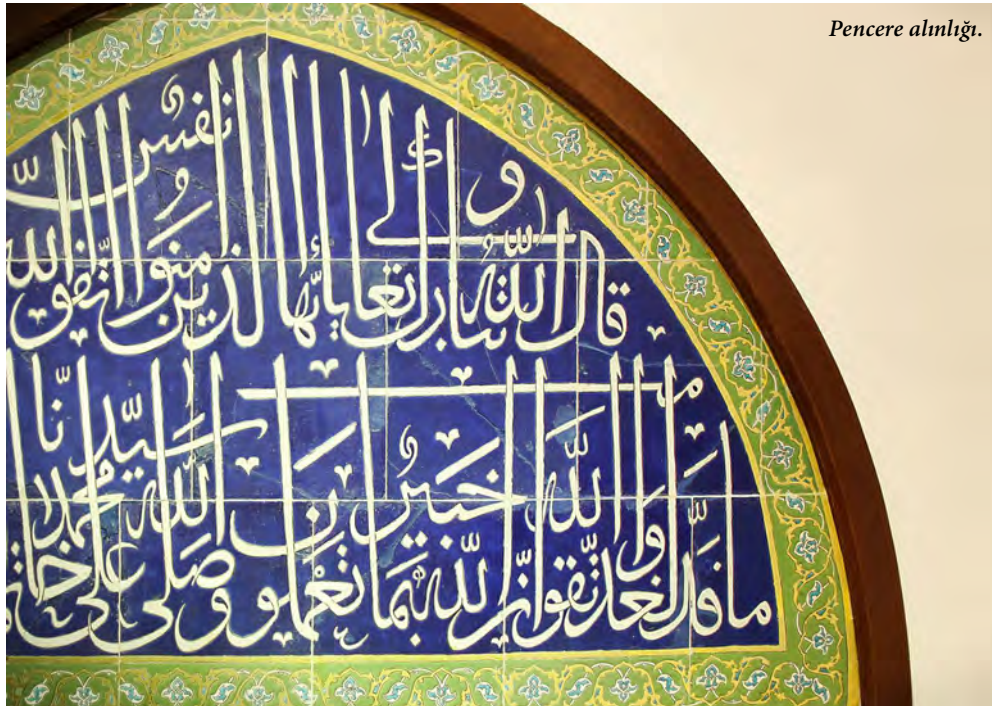 Pencere alınlığı.
قال الله تبارك وتعالى يا أيها الذين آمنوا اتقوا الله نفس
ما قدمت لغد واتقوا الله إن الله خبير بما تعملون وصلى الله على سيدنا محمد